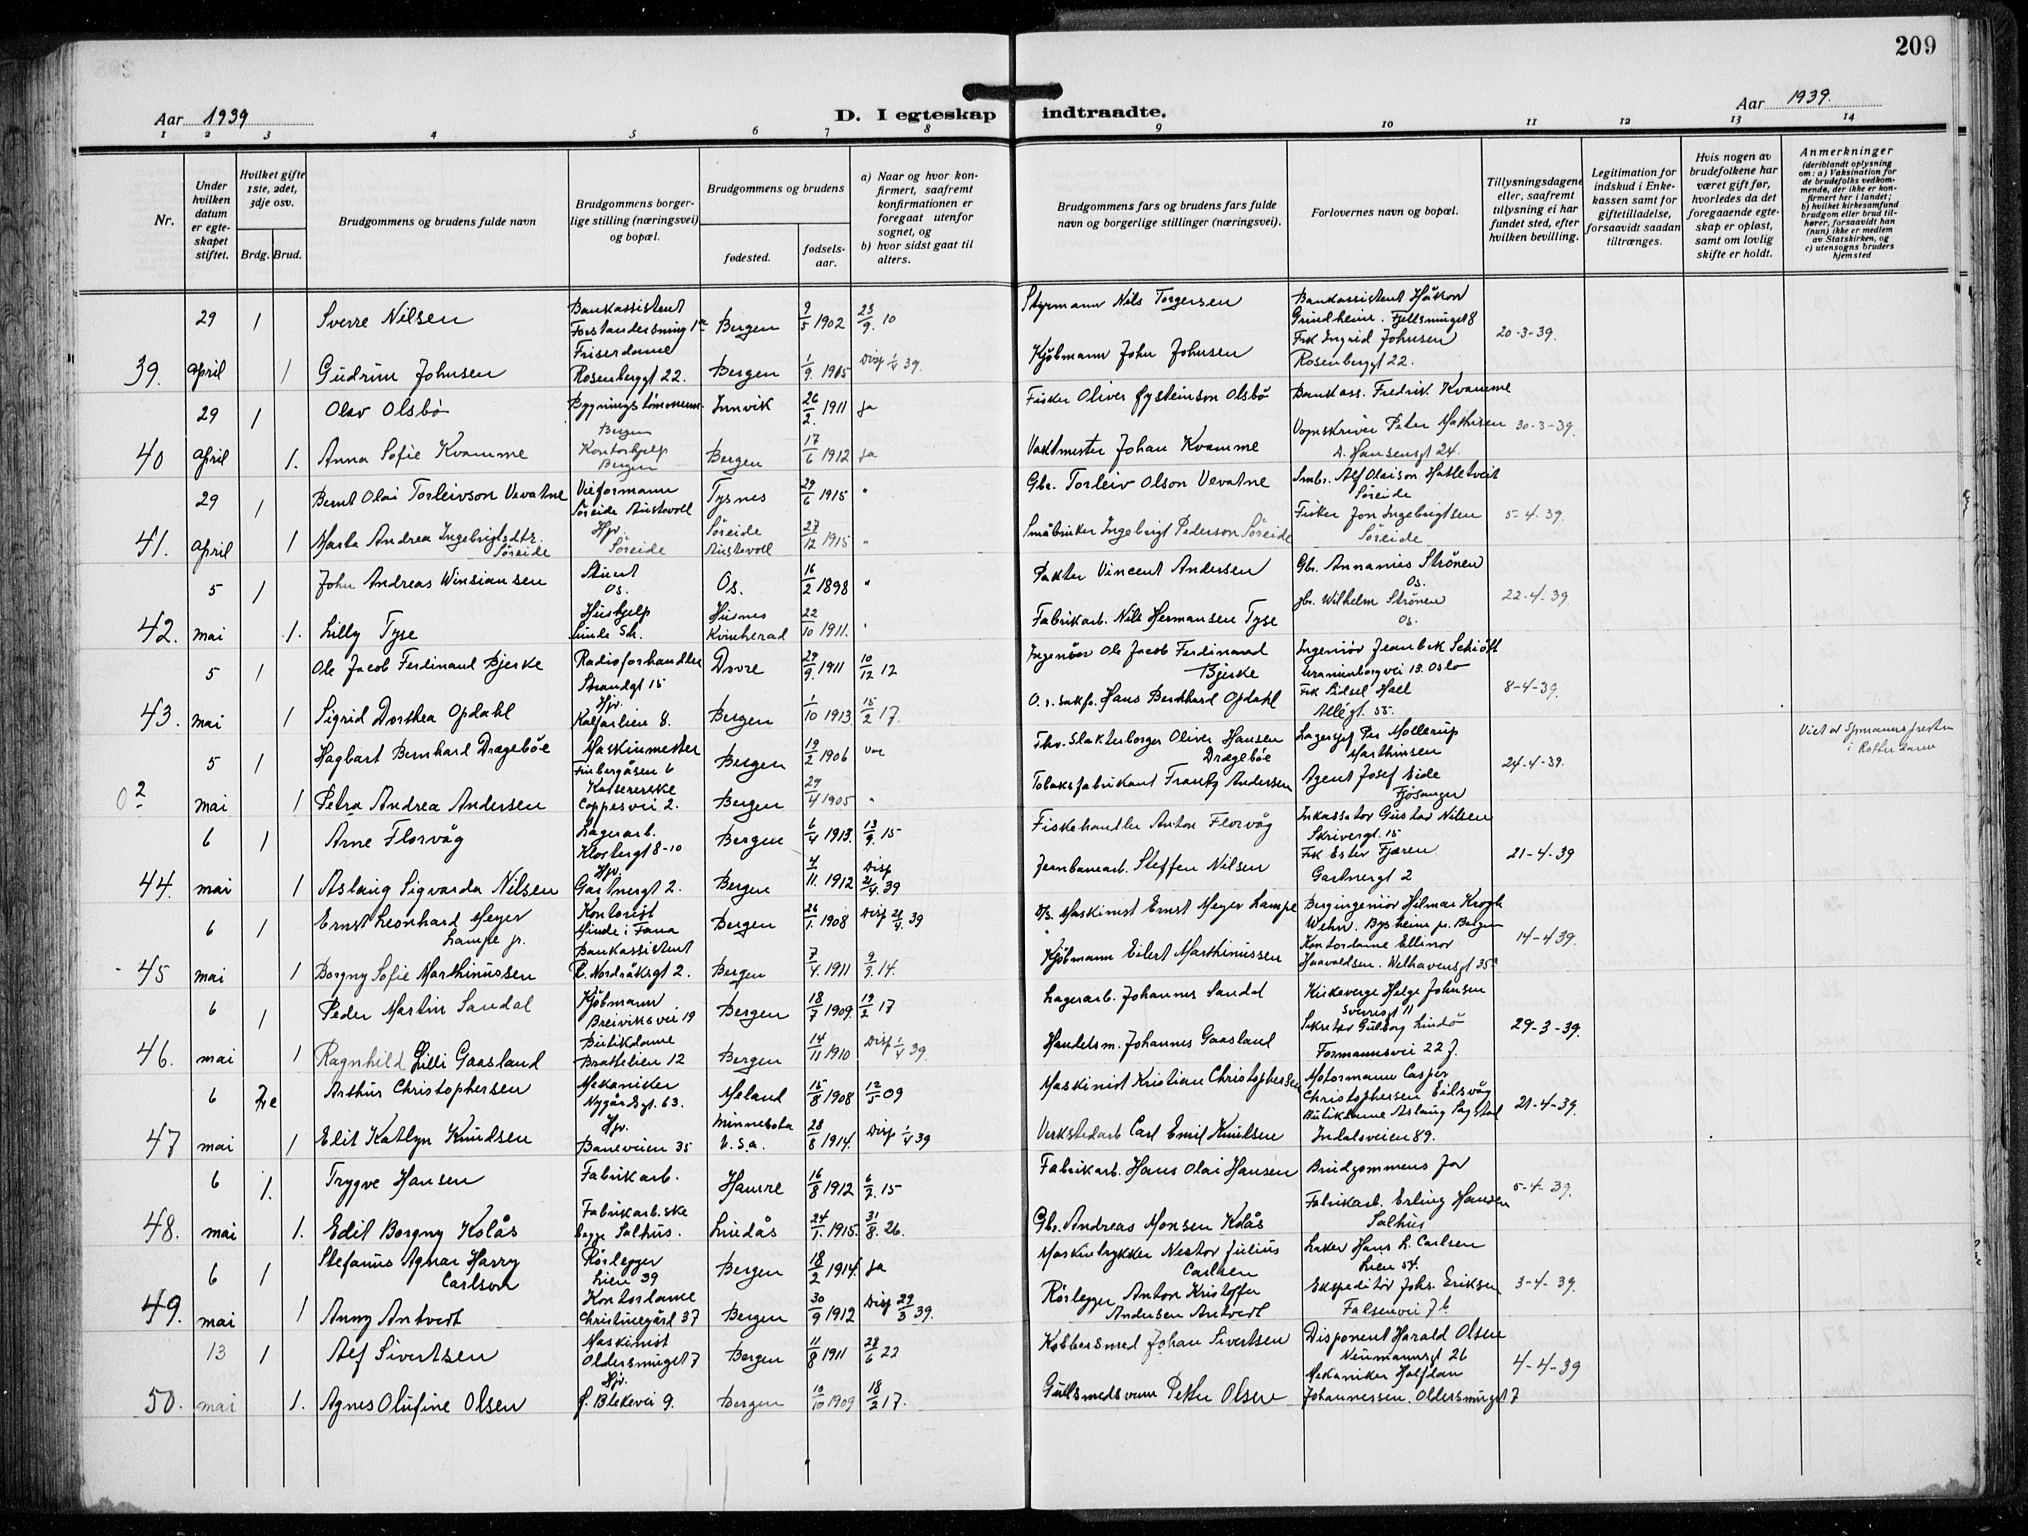 209
Aar 1939
D. I egteskap indtraadte.
Aar 1939.
1 2 3 4 5 6 7 8 9 10 11 12 13 14
Nr.
Under hvilken datum er egteskapet stiftet.
Hvilket gifte 1ste, 2det, 3dje osv.
Brdg. Brud.
Brudgommens og brudens fulde navn
Brudgommens borgerlige stilling (næringsvei) og bopæl.
Brudgommens og brudens
fødested.
fødselsaar.
a) Naar og hvor konfirmert, saafremt konfirmationen er foregaat utenfor sognet, og
b) hvor sidst gaat til alters.
Brudgommens fars og brudens fars fulde navn og borgerlige stillinger (næringsvei).
Forlovernes navn og bopæl.
Tillysningsdagene eller, saafremt tillysning ei har fundet sted, efter hvilken bevilling.
Legitimation for indskud i Enkekassen samt for giftetilladelse, forsaavidt saadan tiltrænges.
Hvis nogen av brudefolkene har været gift før, hvorledes da det foregaaende egteskap er opløst, samt om lovlig skifte er holdt.
Anmerkninger
(deriblandt oplysning om: a) Vaksination for de brudefolks vedkommende, der ikke er konfirmert her i landet; b) hvilket kirkesamfund brudgom eller brud tilhører, forsaavidt han (hun) ikke er medlem av Statskirken, og c) utensogns bruders hjemsted
29 1 Sverre Nilsen Bankassistent Bergen 9/5 1902 23/9 10 Styrmann Nils Torgersen Bankassistent Håkon
Grindheim. Fjellsmuget 8
39. April 1 Gudrun Johnsen Friserdame Rosenberggt 22. Bergen 1/9 1905 Disp 1/4 39. Kjøbmann John Johnsen Frk Ingrid Johnsen 20-3-39.
Rosenberggt 22.
29 1 Olav Olsbø Innvik 26/2 1911 ja Fisker Oliver Øysteinson Olsbø Bankass. Fredrik Kvamme
Bergen
40 April 1. Anna Sofie Kvamme Kontorhjelp Bergen Bergen 17/6 1912 ja Vaktmester Johan Kvamme Vognskriver Peter Mathisen 30-3-39.
D. Hansensgt 24.
29 1 Bernt Olai Torleivson Vevatne Søreide Austevoll Tysnes 29/6 1915 " Gbr. Torleiv Olson Vevatne Smbr. Alf Olaison Hatletveit
Søreide
41. April 1 Marta Andrea Ingebrigtsdtr. Søreide Hjv. Søreide Søreide Austevoll 27/12 1915 " Småbruker Ingebrigt Pederson Søreide Fisker Jon Ingebrigtsen 5-4-39.
Søreide
5 1 John Andreas Winsiansen Stuert Os. Os. 16/2 1898 " Vincent Andersen Gbr. Annanias Strønen
Os.
42. mai 1. Lilly Tyse Hushjelp Husnes Kvinherad 22/10 1911. " Fabrikarb. Nils Hermansen Tyse gbr. Wilhelm Strønen 22-4-39.
Os.
5 1 Ole Jacob Ferdinand Bjerke Radioforhandler Strandgt 15 Dovre 29/9. 1911 10/12 12 Ingeniør Ole Jacob Ferdinand Bjerke Ingeniør Schiøtt
Uranienborgvei 13. Oslo
43. mai 1 Sigrid Dorthea Opdahl Hjv. Kalfarlien 8. Bergen 1/10 1913. 15/2 17. O.r.sakf. Hans Bernhard Opdahl Frk Sidsel Hall 8-4-39.
Allégt. 55.
5 1 Hagbart Bernhard Dragebøe Maskinmester Bergen 19/2 1906 Slakterborger Oliver Hansen Dragebøe Lagersjef Per Møllerup Marthinsen
Viet av Sjømannspresten i Rotterdam
0 2 mai 1 Petra Andrea Andersen Kasererske Bergen 29/4 1905 " Tobaksfabrikant Frantz Andersen Agent Josef Eide 24-4-39.
Fjøsanger
6 1 Arne Florvåg Lagerarb. Klostergt 8-10 Bergen 6/4 1913. 13/9. 15 Fiskehandler Anton Florvåg Inkassator Gustav Nilsen
Skrivergt. 15
44. mai 1 Aslaug Sigvarda Nilsen Hjv. Gartnergt 2. Bergen 4/11. 1912 Disp 21/4. 39 Jernbanearb. Steffen Nilsen Frk Ester Fjæren 21-4-39
Gartnergt 2
6 1 Ernst Leonhard Meyer Lampe jr. Kontorist Minde i Fana Bergen 26/1. 1908 Disp 21/4. 39 Maskinist Ernst Meyer Lampe Bergingeniør Hilmar Krogh
Wehn. pr. Bergen
45 mai 1 Borgny Sofie Marthinussen Bankassistent R. Nordråksgt 2. Bergen 7/4. 1911 9/9. 14. Kjøbmann Eilert Marthinussen Kontordame Ellinor 14-4 39.
Haavaldsen. Welhavensgt 35
6 1 Peder Martin Sandal Kjøbmann Breiviksvei 19 Bergen 18/7 1909. 19/2 17 Lagerarb. Johannes Sandal Kirkeverge Helge Johnsen
Sverresgt 11
46. mai 1 Ragnhild Lilli Gaasland Butikdame Brattelien 12 Bergen 14/11 1910 Disp 1/4 39. Handelsm. Johannes Gaasland Sekretær Gulborg Lindø 29-3-39.
Formannsvei 22
6 2re Arthur Christophersen Mekaniker Nygårdsgt. 63. Meland 15/8 1908 12/5 09 Maskinist Kristian Christophersen Motormann Casper
Christophersen Eidsvåg
47 mai 1 Edit Katlyn Knudsen Hjv. Baneveien 35 Minnesota U.S.a. 28/8 1914. Disp 1/4 39 Verkstedarb Carl Emil Knutsen Butikdame Aslaug 21-4-39.
Indalsveien 89.
6 1. Trygve Hansen Fabrikarb. Hamre 16/8 1912 6/2. 15 Fabrikarb. Hans Olai Hansen Brudgommens far
48. mai 1. Edit Borgny Kolås Fabrikarb.ske begge Salhus. Lindås 24/1. 1915. 31/8. 26. Gbr. Andreas Monsen Kolås Fabrikarb. Erling Hansen 5-4-39.
Salhus
6 1 Stefanus Agnar Harry Carlson Rørlegger Lien 39 Bergen 18/2 1914. ja Nestor Julius Carlsen Hans L. Carlsen
Lien 54.
49. mai 1 Anny Antvedt Kontordame Christinegård 37 Bergen 30/9 1912 Disp 29/3 39. Rørlegger Anton Kristoffer Andersen Antvedt Ekspeditør Johs. Eriksen 3-4-39.
Falsensvei 7 b
13 1 Alf Sivertsen Maskinist Oldersmuget 7 Bergen 11/8 1911 23/6 22 Kobbersmed Johan Sivertsen Disponent Harald Olsen
Neumannsgt 26
50. mai 1. Agnes Olufine Olsen Hjv. J. Blekevei 9. Bergen 10/10 1909 18/2 17. Gullsmedsvenn Petter Olsen Mekaniker Halfdan 4-4-39
Johannessen. Oldersmuget 7